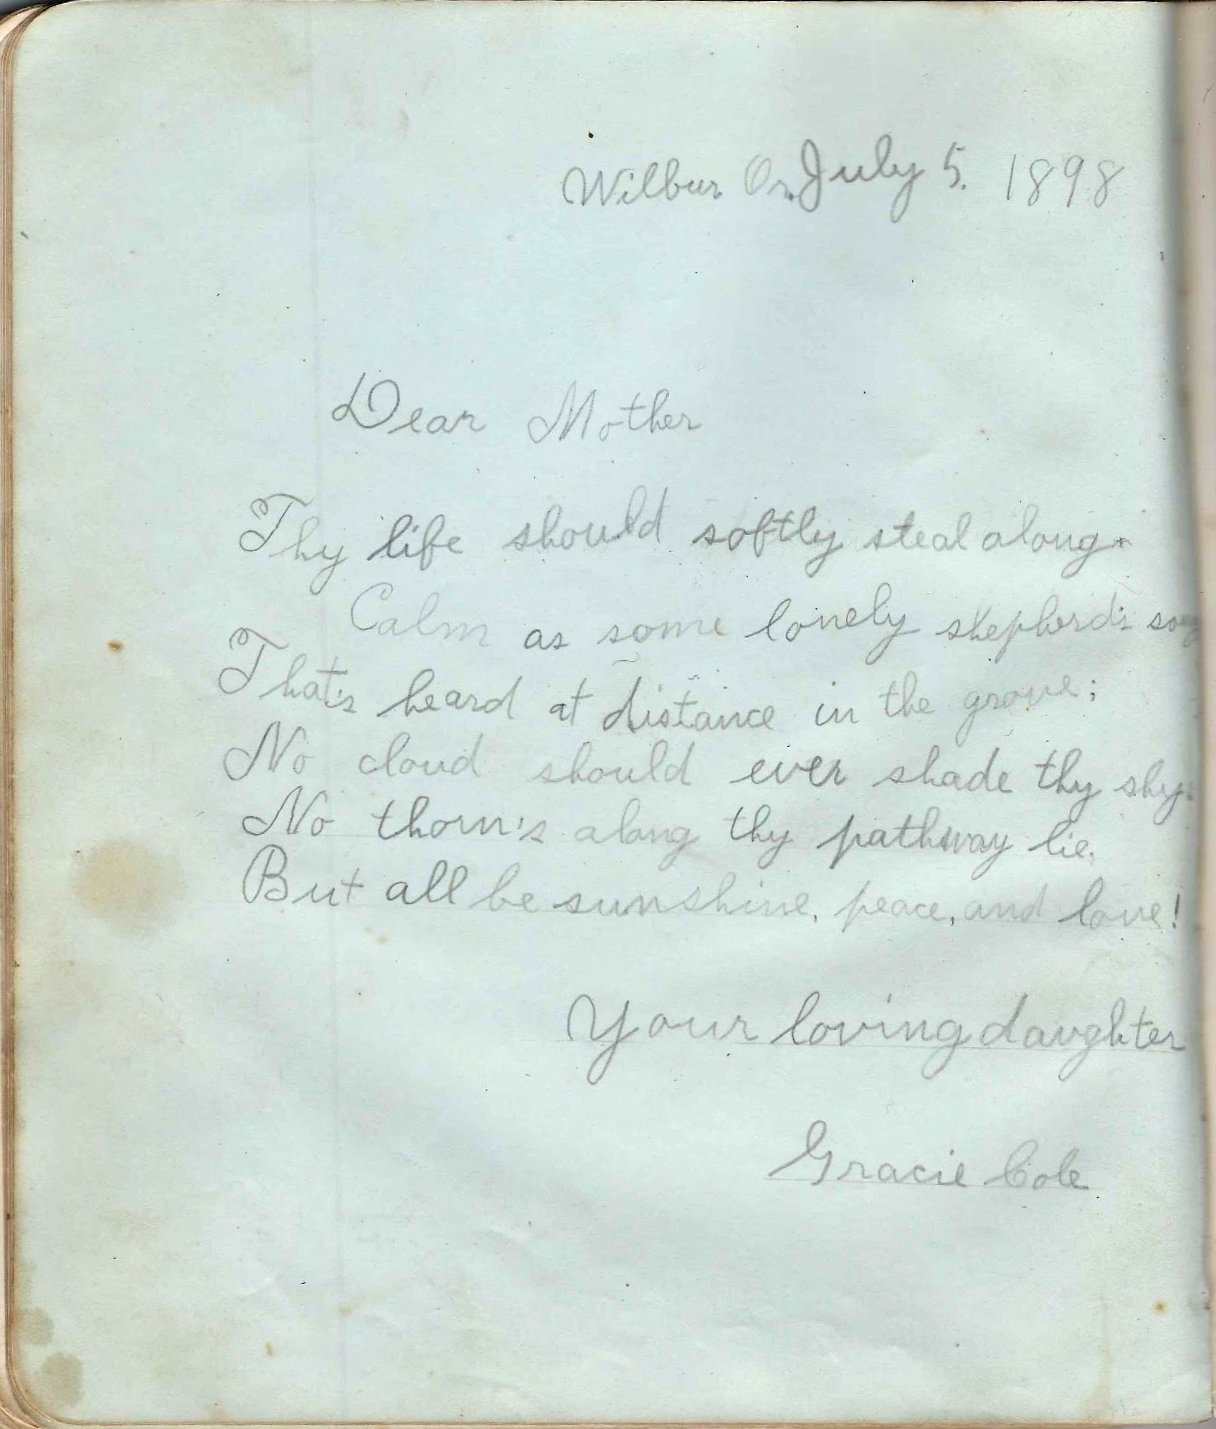 Wilbur. Or. July 5. 1898
Dear Mother
Thy life should softly steal along.
Calm as some lonely shepherd's song
That's heard at distance in the grove;
No cloud should ever shade thy sky.
No thorn's along thy pathway lie,
But all be sunshine, peace, and love!
Your loving daughter
Gracie Cole